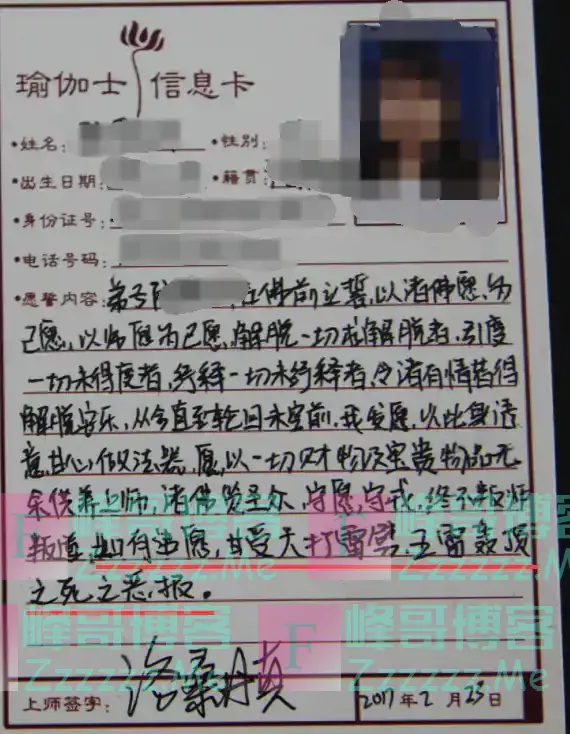 瑜伽士 信息卡
•姓名: •性别:
•出生日期: •籍贯:
•身份证号:
•电话号码:
•愿誓内容: 弟子 在佛前立誓,以诸佛愿为
己愿,以师愿为己愿,解脱一切未解脱者,引度
一切未得度者,解释一切未解释者,令诸有情皆得
解脱安乐,从今直至轮回未空前,我发愿,以此身语
意甘心做法器,愿以一切财物及宝贵物品无
余供养上师,诸佛贤圣众,守愿,守戒,终不叛师
叛道,如有违愿,甘受天打雷劈,五雷轰顶
之死之恶报。
上师签字: 洛桑丹真 2017年2月23日
峰哥博客
Zzzzzz.Me
峰哥博客
Zzzzzz.Me
峰哥博客
Zzzzzz.Me
峰哥博客
Zzzzzz.Me